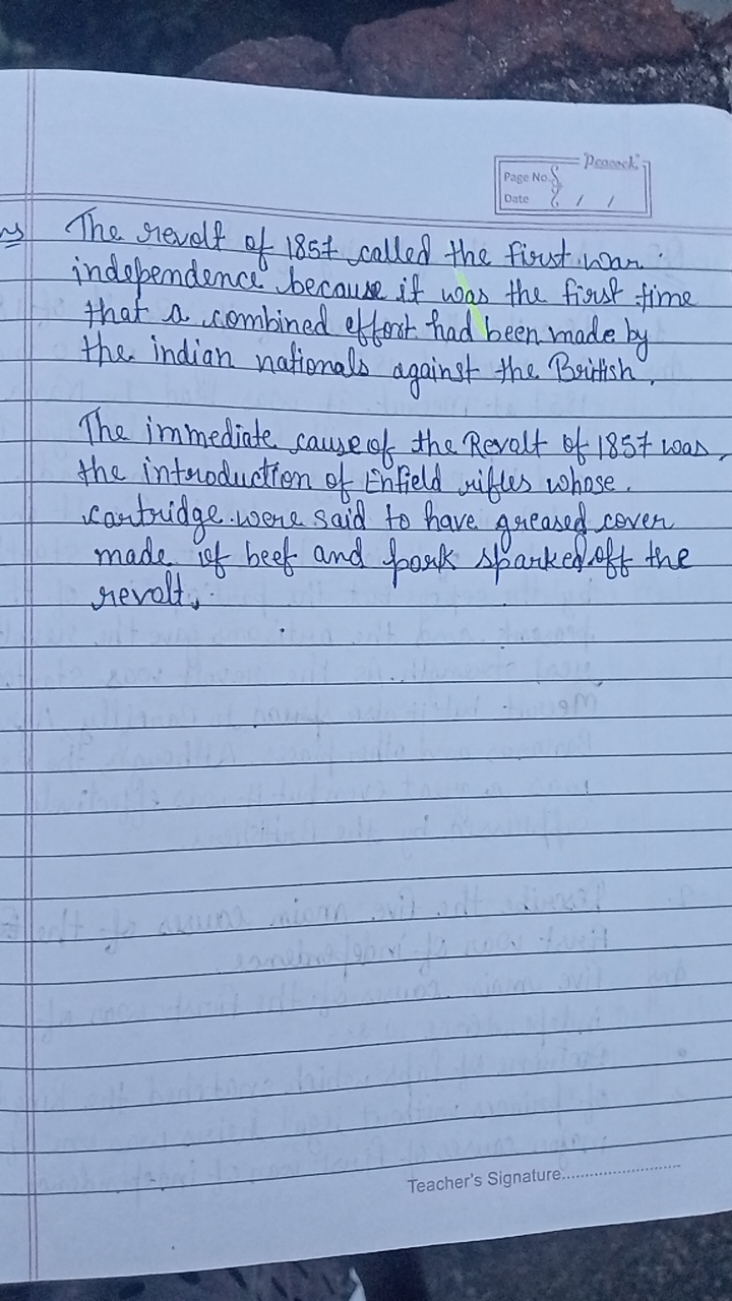 Peacock
Page No.
Date / /
Ans The revolt of 1857 called the first war
independence because it was the first time
that a combined effort had been made by
the indian nationals against the British.
The immediate cause of the Revolt of 1857 was
the introduction of Enfield rifles whose
cartridge were said to have greased cover
made of beef and pork sparked off the
revolt.
Teacher's Signature